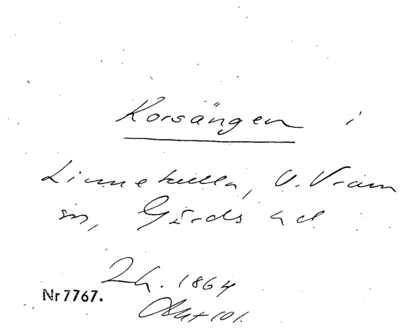 Korsängen i
Linnekulla, V. Vram
sn, Gärds hd
Lh. 1864
Akt 101.
Nr 7767.